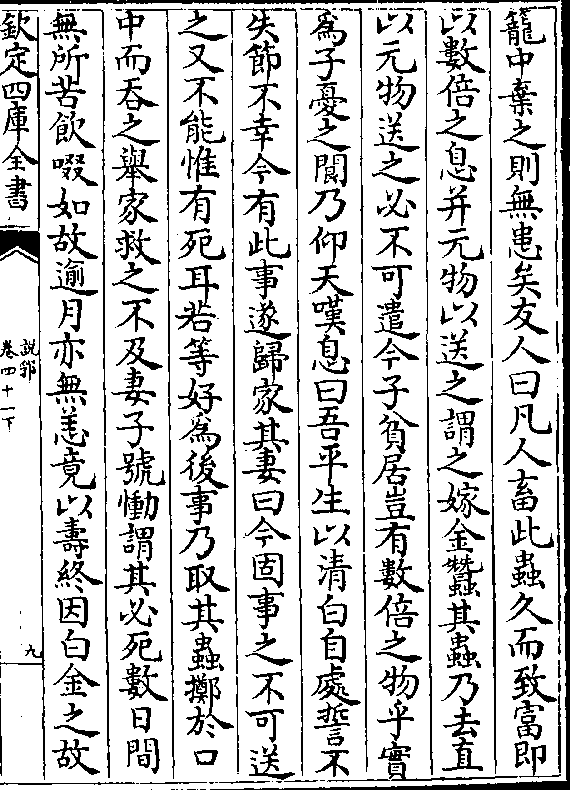 籠中棄之則無患矣友人曰凡人畜此蟲久而致富即
以數倍之息并元物以送之謂之嫁金蠶其蟲乃去直
以元物送之必不可遣今子貧居豈有數倍之物乎實
為子憂之閬乃仰天嘆息曰吾平生以清白自處誓不
失節不幸今有此事遂歸家其妻曰今固事之不可送
之又不能惟有死耳若等好為後事乃取其蟲擲於口
中而吞之舉家救之不及妻子號慟謂其必死數日間
無所苦飲啜如故逾月亦無恙竟以壽終因白金之故
欽定四庫全書
說郛
卷四十一下
九